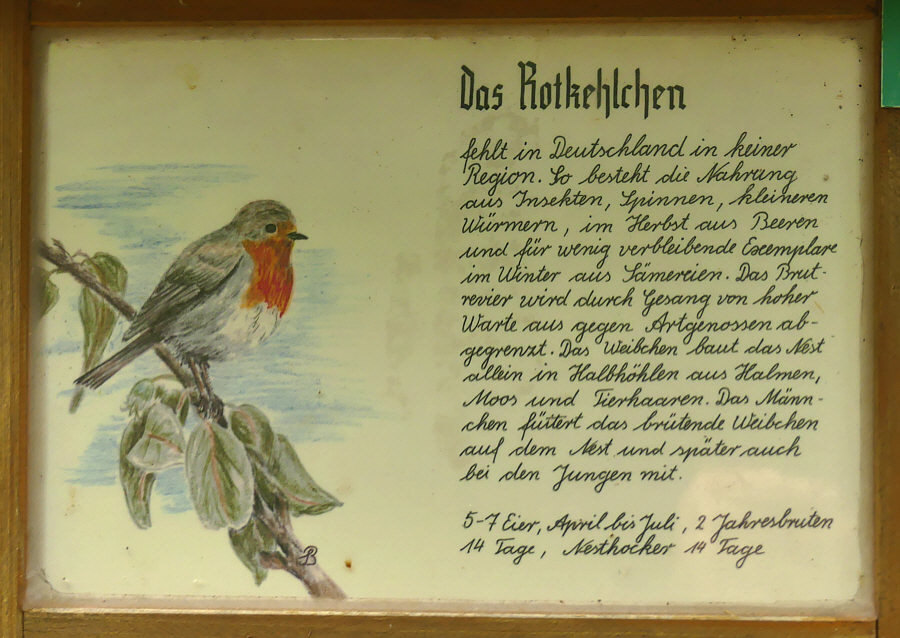 Das Rotkehlchen
fehlt in Deutschland in keiner
Region. So besteht die Nahrung
aus Insekten, Spinnen, kleineren
Würmern, im Herbst aus Beeren
und für wenig verbleibende Exemplare
im Winter aus Sämereien. Das Brut-
revier wird durch Gesang von hoher
Warte aus gegen Artgenossen ab-
gegrenzt. Das Weibchen baut das Nest
allein in Halbhöhlen aus Halmen,
Moos und Tierhaaren. Das Männ-
chen füttert das brütende Weibchen
auf dem Nest und später auch
bei den Jungen mit.
5-7 Eier, April bis Juli, 2 Jahresbruten
14 Tage, Nesthocker 14 Tage